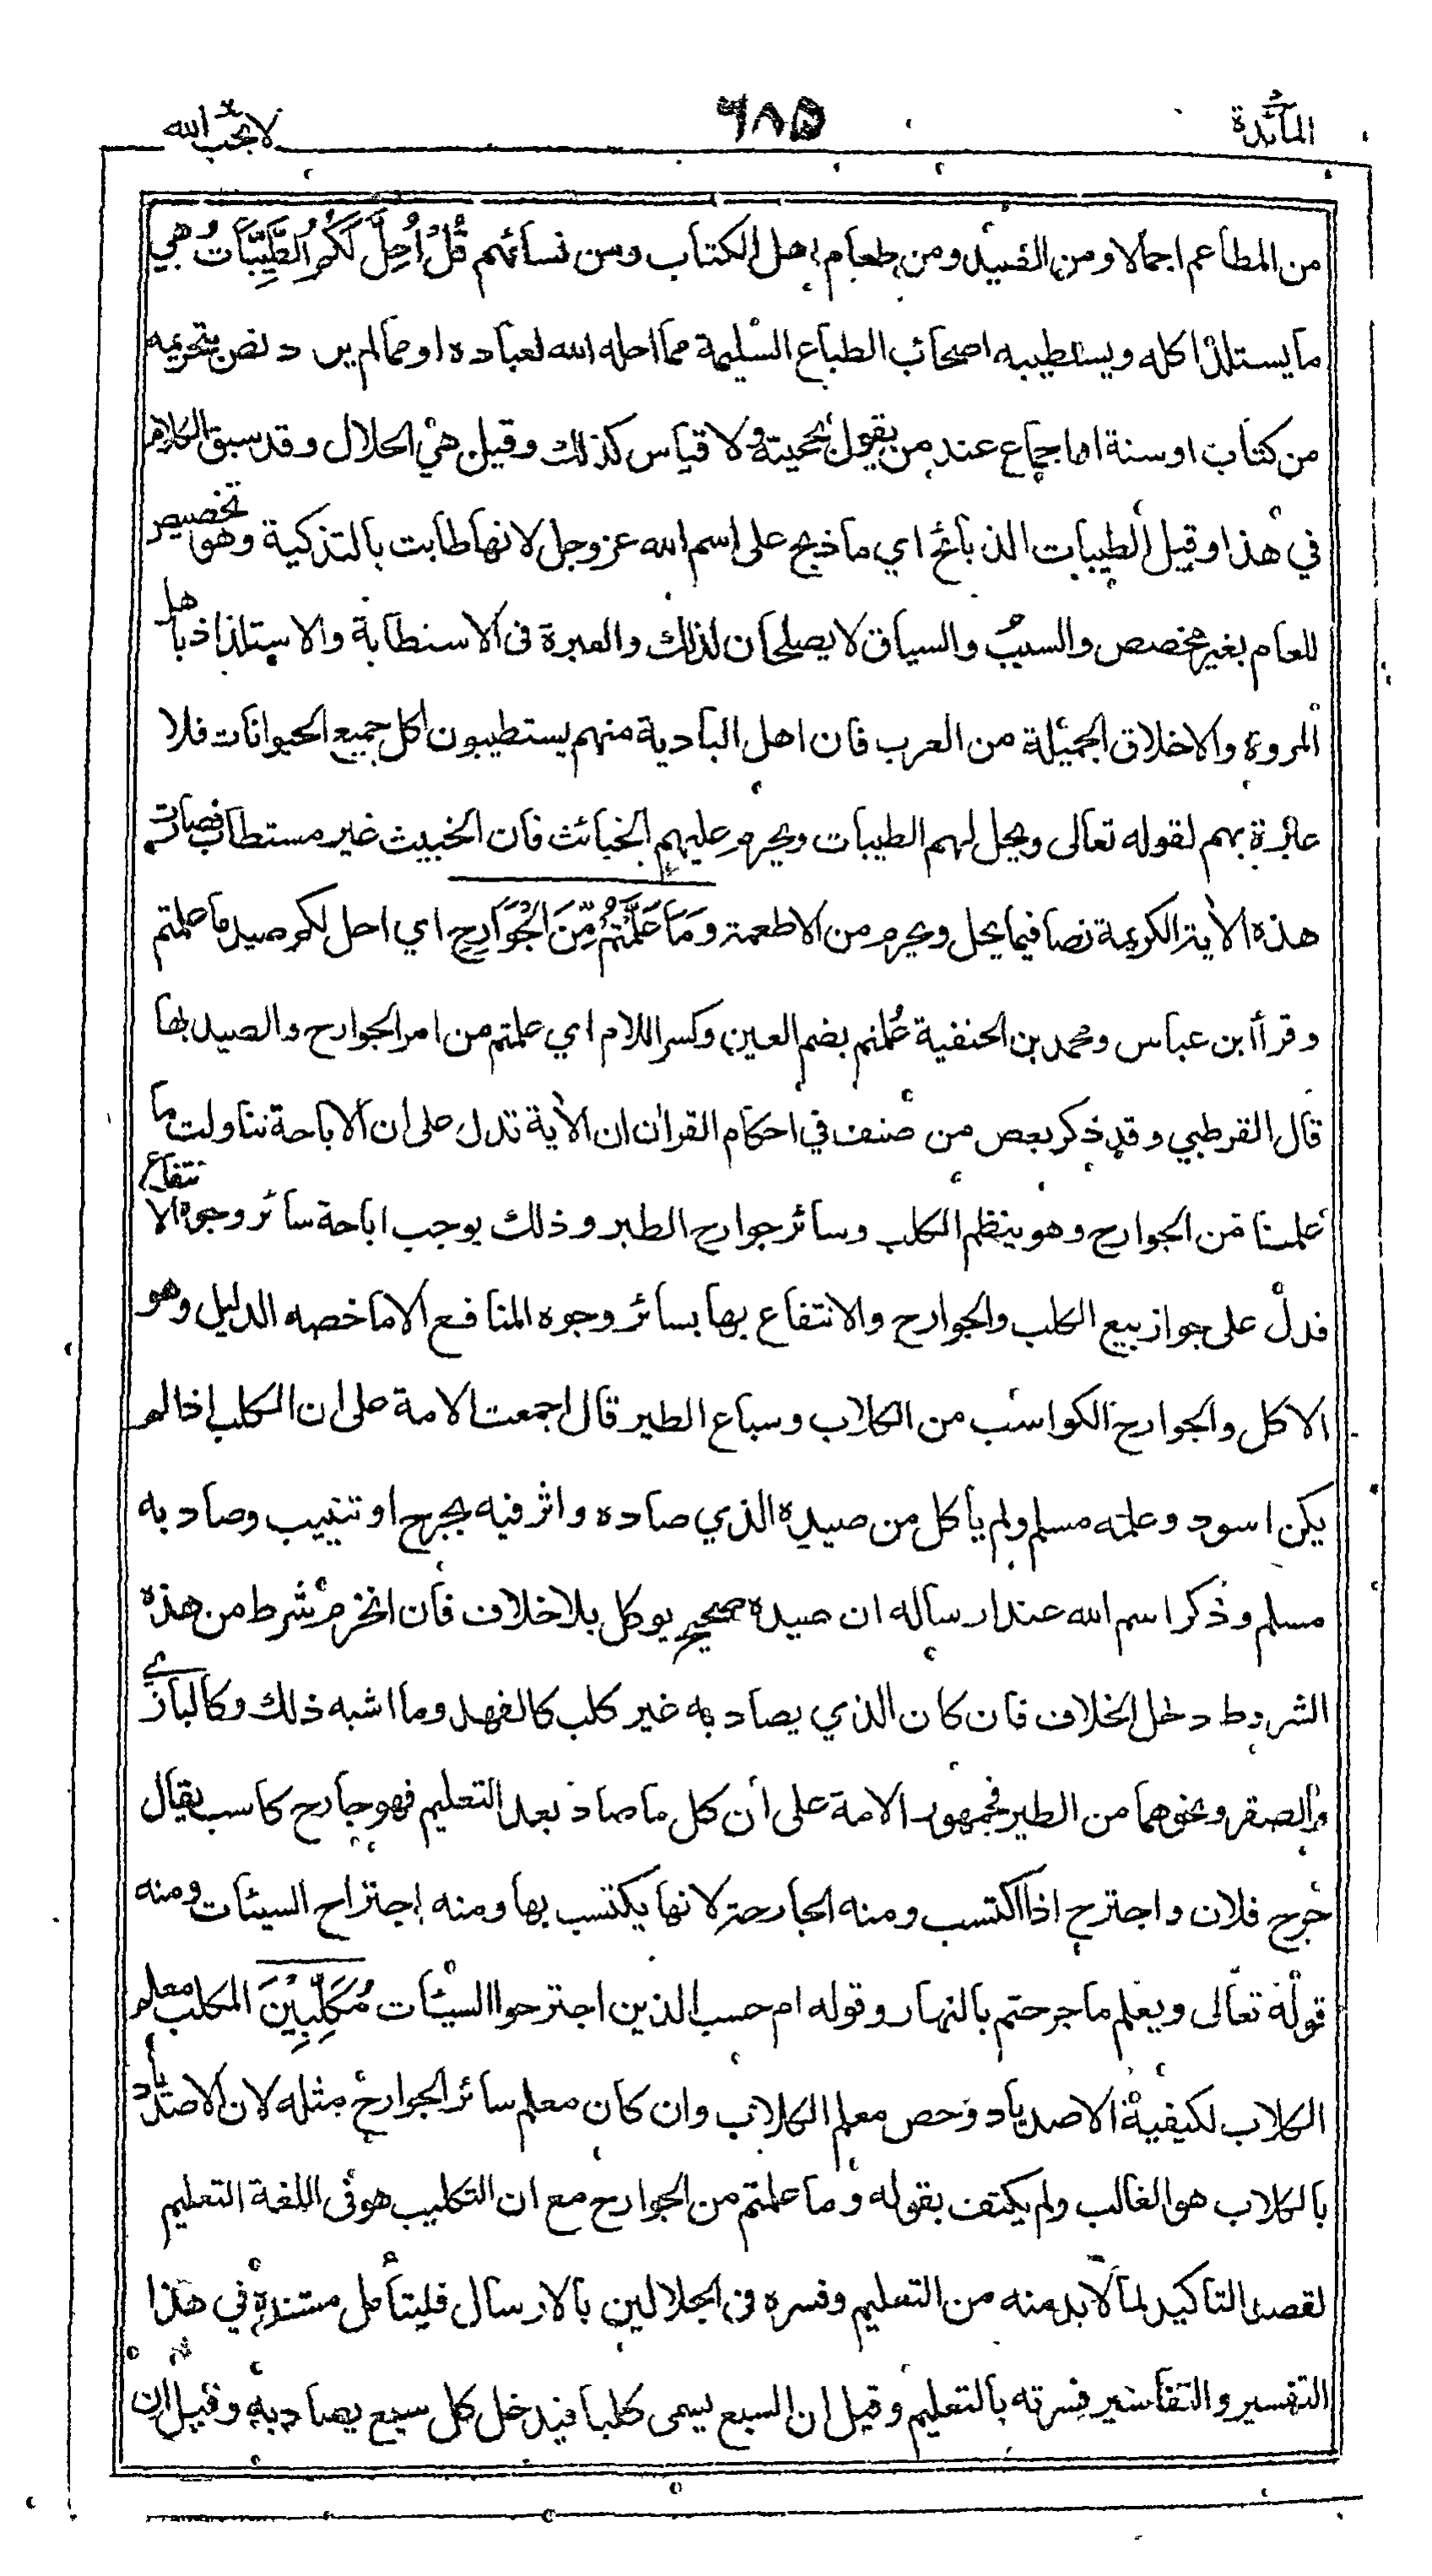 المآئدة ٦٨٥ لا يحب الله
من المطاعم اجمالا ومن الصيد ومن طعام اهل الكتاب ومن نسائهم قُلْ اُحِلَّ لَكُمُ الطَّيِّبَاتُ هي
ما يستلذ اكله ويستطيبه اصحاب الطباع السليمة مما احله الله لعباده او مما لم يرد نص بتحريمه
من كتاب او سنة او اجماع عند من يقول بحجيته ولا قياس كذلك وقيل هي الحلال وقد سبق الكلام
في هذا وقيل الطيبات الذبائح اي ما ذبح على اسم الله عز وجل لانها طابت بالتذكية وهو تخصيص
للعام بغير مخصص والسبب والسياق لا يصلحان لذلك والعبرة فى الاستطابة والاستلذاذ باهل
المروة والاخلاق الجميلة من العرب فان اهل البادية منهم يستطيبون اكل جميع الحيوانات فلا
عبرة بهم لقوله تعالى ويحل لهم الطيبات ويحرم عليهم الخبائث فان الخبيث غير مستطاب فصارت
هذه الاٰية الكريمة نصا فيما يحل ويحرم من الاطعمة وَمَا عَلَّمْتُمْ مِّنَ الْجَوَارِحِ اي احل لكم صيد ما علمتم
وقرأ ابن عباس ومحمد بن الحنفية عُلمتم بضم العين وكسر اللام اي علمتم من امر الجوارح والصيد بها
قال القرطبي وقد ذكر بعض من صنف في احكام القراٰن ان الاٰية تدل على ان الاباحة تناولت ما
علمنا من الجوارح وهو ينظم الكلب وسائر جوارح الطير وذلك يوجب اباحة سائر وجوه الانتفاع
فدل على جواز بيع الكلب والجوارح والانتفاع بها بسائر وجوه المنافع الا ما خصه الدليل وهو
الاكل والجوارح الكواسب من الكلاب وسباع الطير قال اجمعت الامة على ان الكلب اذا لم
يكن اسود وعلمه مسلم ولم ياكل من صيده الذي صاده واثر فيه بجرح او تنييب وصاد به
مسلم وذكر اسم الله عند ارساله ان صيده صحيح يوكل بلا خلاف فان انخرم شرط من هذه
الشروط دخل الخلاف فان كان الذي يصاد به غير كلب كالفهد وما اشبه ذلك وكالبازي
والصقر ونحوهما من الطير فجمهور الامة على ان كل ما صاد بعد التعليم فهو جارح كاسب يقال
جرح فلان واجترح اذا اكتسب ومنه الجارحة لانها يكتسب بها ومنه اجتراح السيئات ومنه
قوله تعالى ويعلم ما جرحتم بالنهار وقوله ام حسب الذين اجترحوا السيئات مُكَلِّبِيْنَ المكلب معلم
الكلاب لكيفية الاصطياد وخص معلم الكلاب وان كان معلم سائر الجوارح مثله لان الاصطياد
بالكلاب هو الغالب ولم يكتف بقوله وما علمتم من الجوارح مع ان التكليب هو فى اللغة التعليم
لقصد التاكيد لما لا بد منه من التعليم وفسره فى الجلالين بالارسال فليتأمل مستنده في هذا
التفسير والتفاسير فسرته بالتعليم وقيل ان السبع يسمى كلبا فيدخل كل سبع يصاد به وقيل ان